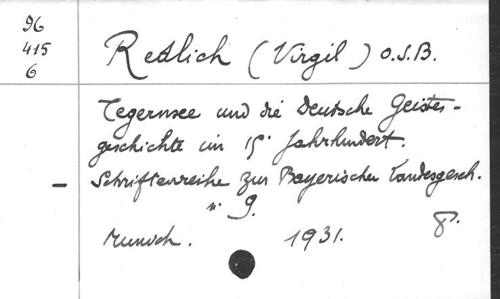 96
415
6
Redlich (Virgil) O.S.B.
Tegernsee und die Deutsche Geistes-
geschichte im 15. Jahrhundert.
- Schriftenreihe zur Bayerischen Landesgesch.
n° 9.
Munich. 1931. 8°.